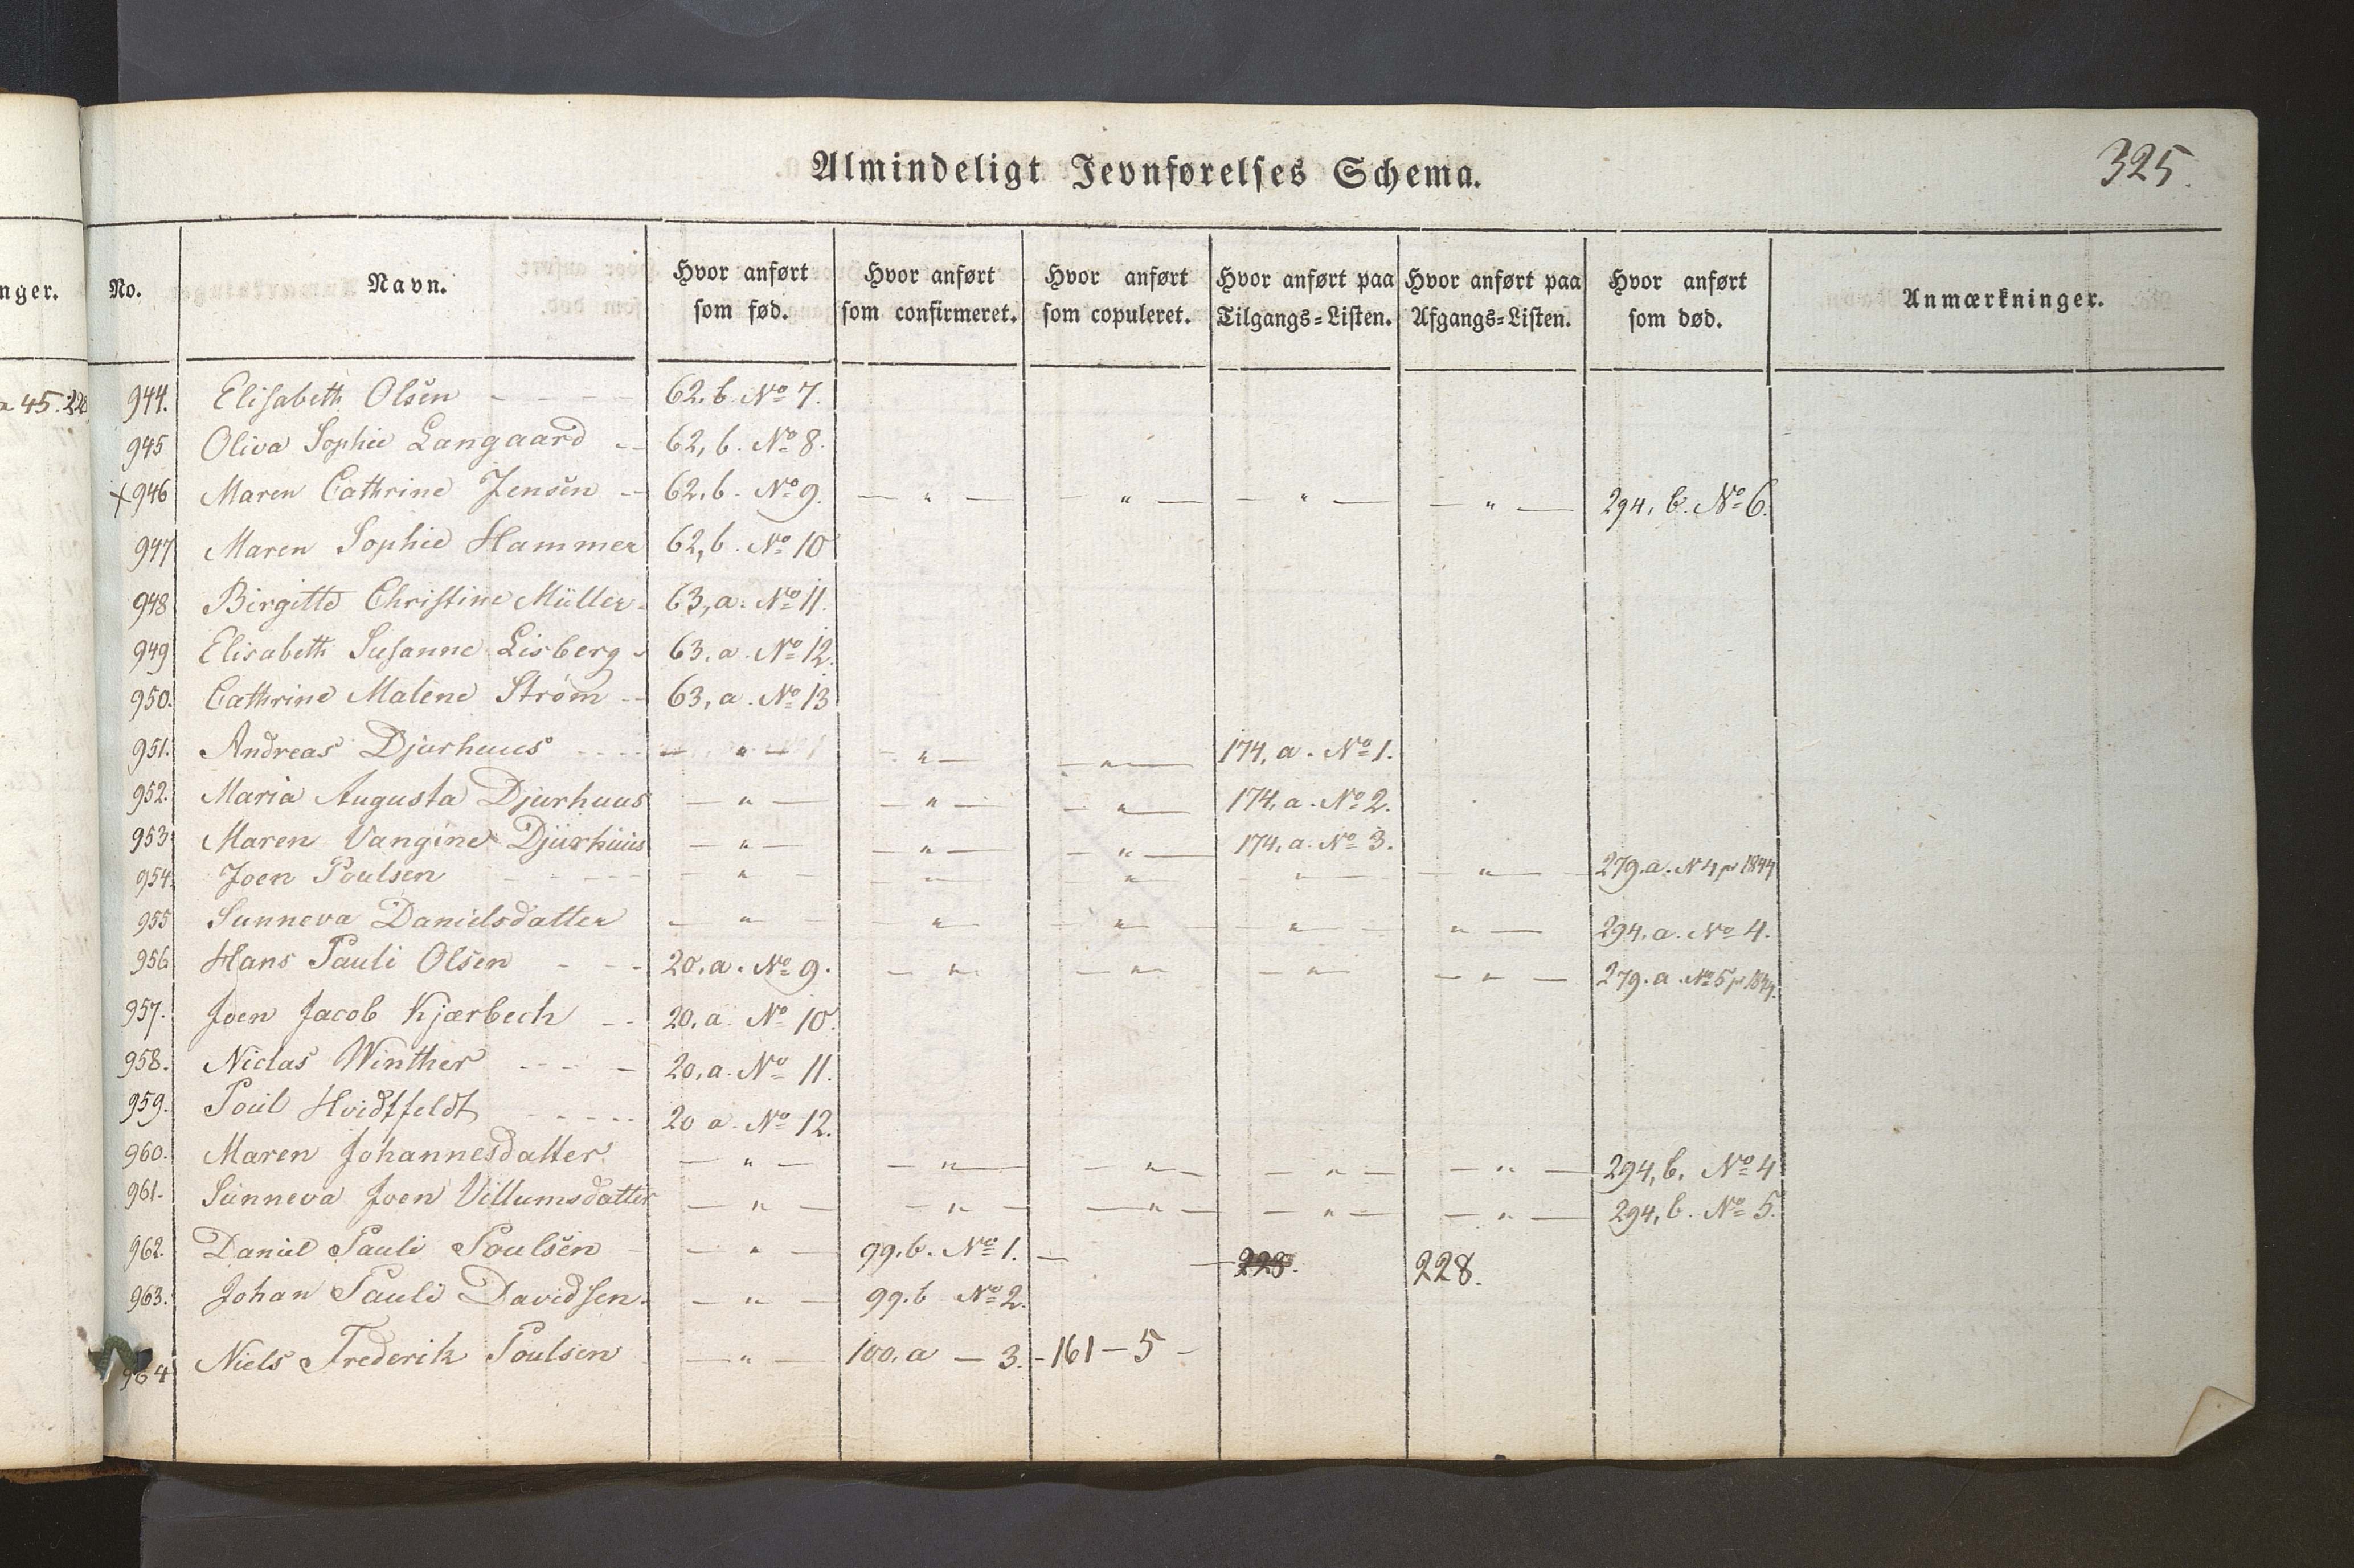 Almindeligt Jevnførelses Schema.
325.
nger.
No. Navn. Hvor anført som fød. Hvor anført som confirmeret. Hvor anført som copuleret. Hvor anført paa Tilgangs=Listen. Hvor anført paa Afgangs=Listen. Hvor anført som død. Anmærkninger.
944. Elisabeth Olsen - - - - 62. b No 7.
945 Oliva Sophie Langaard - - 62, b. No 8.
×946 Maren Cathrine Jensen - 62. b. No 9. — " — — " — — " — — " — 294, b. No 6.
947 Maren Sophie Hammer 62, b. No 10
948 Birgitte Christine Müller. 63, a. No 11.
949 Elisabeth Susanne Lisberg - 63. a. No 12.
950. Cathrine Malene Strøm - - 63, a. No 13
951. Andreas Djurhuus - - - - — " — — " — — " — 174, a. No 1.
952. Maria Augusta Djurhuus — " — — " — — " — 174, a. No 2.
953. Maren Vangine Djurhuus — " — — " — — " — 174, a. No 3.
954. Joen Poulsen - - - - — " — — " — — " — — " — — " — 279. a. N 4 pr 1844
955 Sunneva Danielsdatter — " — — " — — " — — " — — " — 294. a. No 4.
956 Hans Pauli Olsen - - - 20, a. No 9. — " — — " — — " — — " — 279. a. No 5 pr 1844.
957. Joen Jacob Kjærbech - - 20, a. No 10.
958. Niclas Winther - - - - 20, a. No 11.
959. Poul Hvidtfeldt - - - - 20 a. No 12.
960. Maren Johannesdatter — " — — " — — " — — " — — " — 294, b. No 4
961. Sunneva Joen Villumsdatter — " — — " — — " — — " — — " — 294, b. No 5.
962. Daniel Pauli Poulsen - — " — 99. b. No 1. — — 228. 228.
963. Johan Pauli Davidsen. — " — 99. b No 2.
964 Niels Frederik Poulsen — " — 100. a — 3. - 161 — 5 -